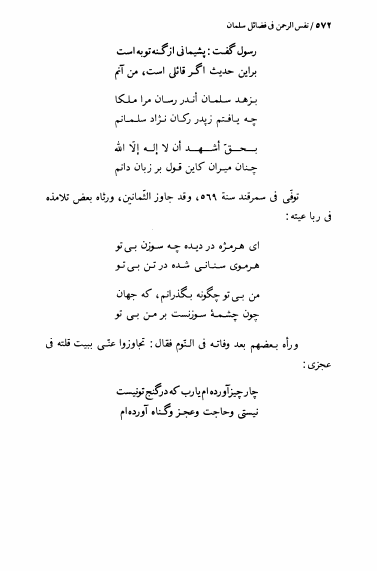 ۵۷۲ / نفس الرحمن فی فضائل سلمان
رسول گفت : پشیمانی از گنه توبه است
براین حدیث اگر قائلی است، من آنم
بزهد سلمان أندر رسان مرا ملکا
چه یافتم زپدر رکان نژاد سلمانم
بحق أشهد أن لا إله إلّا الله
چنان میران کاین قول بر زبان دانم
توفّی فی سمرقند سنة ۵۶۹، وقد جاوز الثّمانین، ورثاه بعض تلامذه
فی رباعیته :
ای هرمژه در دیده چه سوزن بی تو
هرموی سنانی شده در تن بی تو
من بی تو چگونه بگذرانم، که جهان
چون چشمۀ سوزنست بر من بی تو
ورأه بعضهم بعد وفاته فی النّوم فقال : تجاوزوا عنّی ببیت قلته فی
عجزی :
چار چیز آورده ام یارب که در گنج تو نیست
نیستی وحاجت وعجز وگناه آورده ام